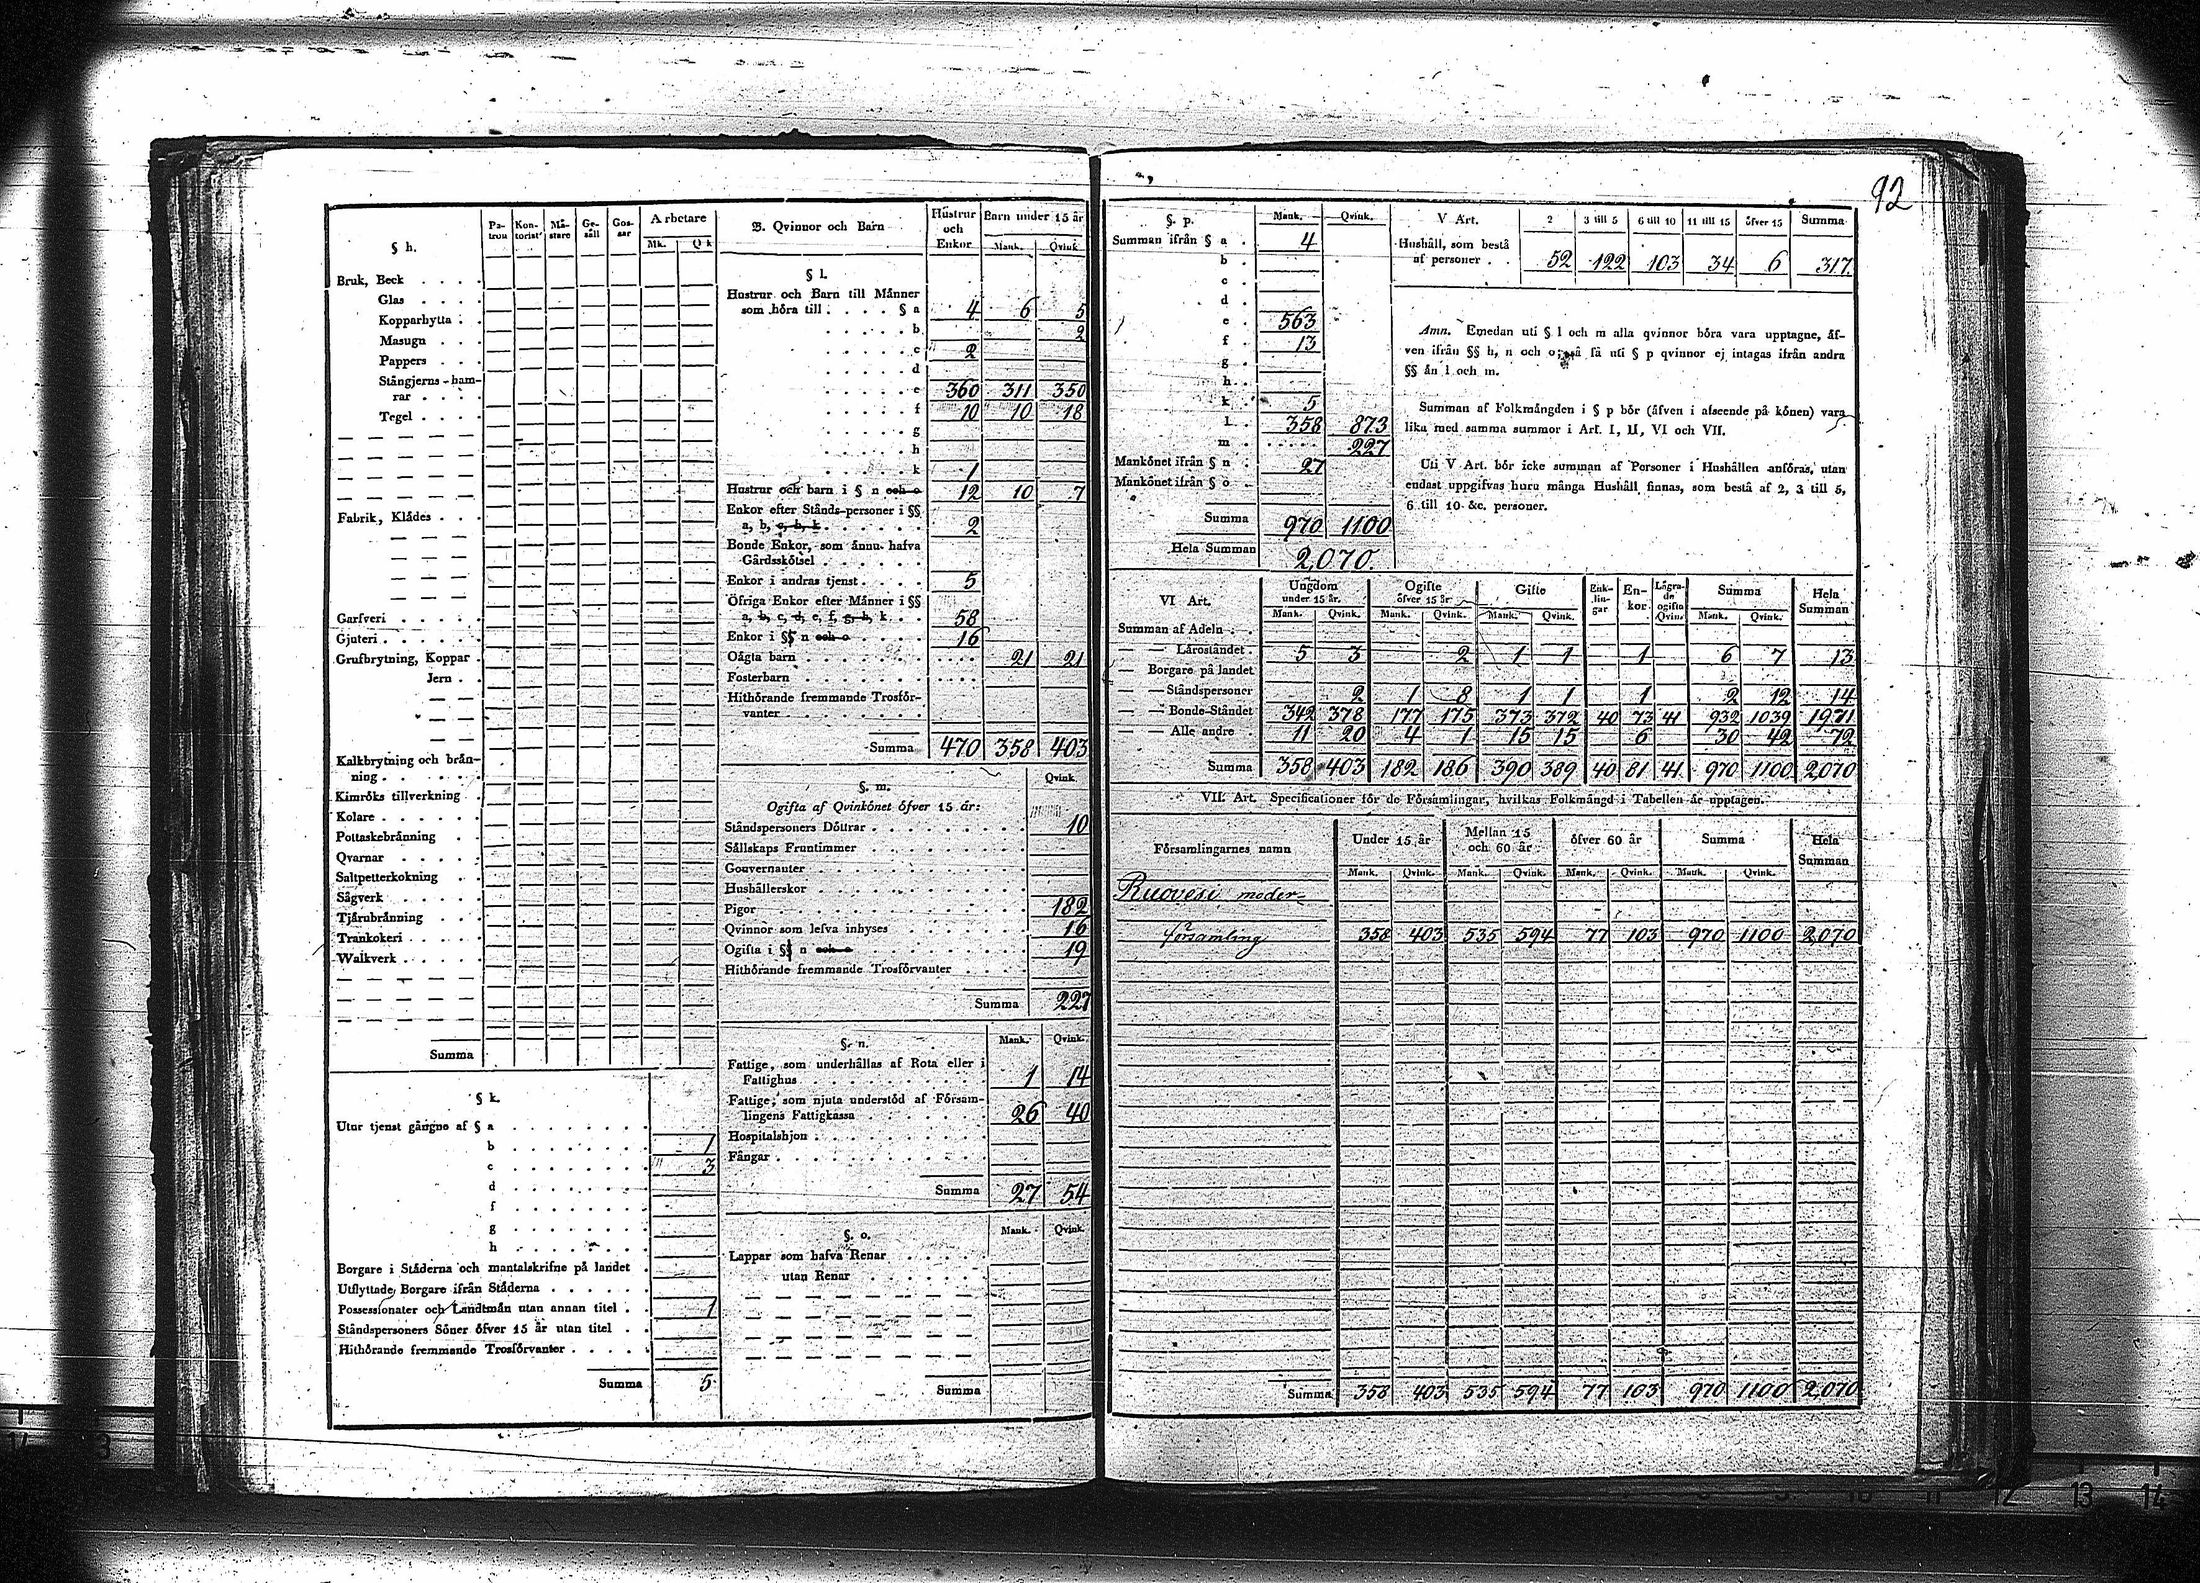 92
§ h.
Pa-tron Kon-torist Mä-stare Ge-säll Gos-sar Arbetare
Mk. Qk
Bruk, Beck . . . .
Glas . . . .
Kopparhytta . .
Masugn . . .
Pappers . . .
Stångjerns-ham-
rar . . . .
Tegel . . . .
Fabrik, Klädes . . .
Garfveri . . . . .
Gjuteri . . . . .
Grufbrytning, Koppar .
Jern . .
Kalkbrytning och brän-
ning . . . . .
Kimröks tillverkning .
Kolare . . . . .
Pottaskebränning . .
Qvarnar . . . . .
Saltpetterkokning . .
Sågverk . . . . .
Tjärubränning . . .
Trankokeri . . . .
Walkverk . . . . .
Summa
§ k.
Utur tjenst gångne af § a . . . . . . . .
b . . . . . . . . 1
c . . . . . . . . 3
d . . . . . . . .
f . . . . . . . .
g . . . . . . . .
h . . . . . . . .
Borgare i Städerna och mantalskrifne på landet .
Utflyttade Borgare ifrån Städerna . . . . . .
Possessionater och Landtmän utan annan titel . . 1
Ståndspersoners Söner öfver 15 år utan titel . .
Hithörande fremmande Trosförvanter . . . . .
Summa 5
B. Qvinnor och Barn
Hustrur och Enkor Barn under 15 år
Mank. Qvink
§ l.
Hustrur och Barn till Männer
som höra till . . . . § a 4 6 5
. . . . . b 2
. . . . . c 2
. . . . . d
. . . . . e 360 311 350
. . . . . f 10 10 18
. . . . . g
. . . . . h
. . . . . k 1
Hustrur och barn i § n och o 12 10 7
Enkor efter Stånds-personer i §§
a, b, c, h, k . . . . . . 2
Bonde Enkor, som ännu hafva
Gårdsskötsel . . . . . .
Enkor i andras tjenst . . . . 5
Öfriga Enkor efter Männer i §§
a, b, c, d, e, f, g, h, k . . . 58
Enkor i §§ n och o . . . . . 16
Oägta barn . . . . . . . . . . . . 21 21
Fosterbarn . . . . . . . . . . . .
Hithörande fremmande Trosför-
vanter . . . . . . . .
Summa 470 358 403
§. m. Qvink
Ogifta af Qvinkönet öfver 15 år:
Ståndspersoners Döttrar . . . . . . . . . 10
Sällskaps Fruntimmer . . . . . . . . . .
Gouvernanter . . . . . . . . . . . . .
Hushållerskor . . . . . . . . . . . .
Pigor . . . . . . . . . . . . . . 182
Qvinnor som lefva inhyses . . . . . . . 16
Ogifta i §§ n och o . . . . . . . . . 19
Hithörande fremmande Trosförvanter . . . .
Summa 227
§. n. Mank. Qvink.
Fattige, som underhållas af Rota eller i
Fattighus . . . . . . . . . . 1 14
Fattige, som njuta understöd af Försam-
lingens Fattigkassa . . . . . . . 26 40
Hospitalshjon . . . . . . . . . .
Fångar . . . . . . . . . . . .
Summa 27 54
§. o. Mank. Qvink.
Lappar som hafva Renar . . . . .
utan Renar . . . . . .
Summa
§. p. Mank. Qvink.
Summan ifrån § a . 4
b .
c .
d .
e . 563
f . 13
g .
h .
k . 5
l . 358 873
m . . . . . . 227
Mankönet ifrån § n . 27
Mankönet ifrån § o .
Summa 970 1100
Hela Summan 2,070.
V Art. 2 3 till 5 6 till 10 11 till 15 öfver 15 Summa
Hushåll, som bestå
af personer . . 52 122 103 34 6 317.
Anm. Emedan uti § l och m alla qvinnor böra vara upptagne, äf-
ven ifrån §§ h, n och o; så få uti § p qvinnor ej intagas ifrån andra
§§ än l och m.
Summan af Folkmängden i § p bör (äfven i afseende på könen) vara
lika med samma summor i Art. I, II, VI och VII.
Uti V Art. bör icke summan af Personer i Hushållen anföras, utan
endast uppgifvas huru många Hushåll finnas, som bestå af 2, 3 till 5,
6 till 10 &c. personer.
VI Art. Ungdom under 15 år. Ogifte öfver 15 år Gifte Enk-lin-gar En-kor Lägra-de ogifta Qvin. Summa Hela Summan
Mank. Qvink. Mank. Qvink. Mank. Qvink. Mank. Qvink.
Summan af Adeln . .
— — Läroståndet . 5 3 2 1 1 1 6 7 13
— Borgare på landet
— — Ståndspersoner 2 1 8 1 1 1 2 12 14
— — Bonde-Ståndet 342 378 177 175 373 372 40 73 41 932 1039 1971
— — Alle andre . 11 20 4 1 15 15 6 30 42 72
Summa 358 403 182 186 390 389 40 81 41. 970 1100 2,070
VII. Art. Specificationer för de Församlingar, hvilkas Folkmängd i Tabellen är upptagen.
Församlingarnes namn Under 15 år Mellan 15 och 60 år öfver 60 år Summa Hela Summan
Mank. Qvink. Mank. Qvink. Mank. Qvink. Mank. Qvink.
Ruovesi moder-
församling 358 403 535 594 77 103 970 1100 2,070
Summa 358 403 535 594 77 103 970 1100 2,070